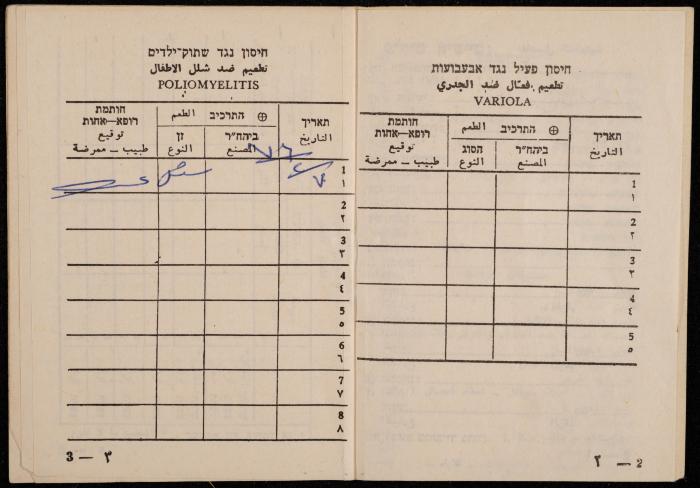 חיסון פעיל נגד אבעבועות
تطعيم فعّال ضد الجدري
VARIOLA
תאריך
التاريخ
⊕ התרכיב الطعم
ביהח"ר
المصنع
הסוג
النوع
חותמת
רופא—אחות
توقيع
طبيب — ممرضة
1
١
2
٢
3
٣
4
٤
5
٥
٢ — 2
חיסון נגד שתוק־ילדים
تطعيم ضد شلل الاطفال
POLIOMYELITIS
תאריך
التاريخ
⊕ התרכיב الطعم
ביהח"ר
المصنع
זן
النوع
חותמת
רופא—אחות
توقيع
طبيب — ممرضة
1
١
2
٢
3
٣
4
٤
5
٥
6
٦
7
٧
8
٨
3 — ٣